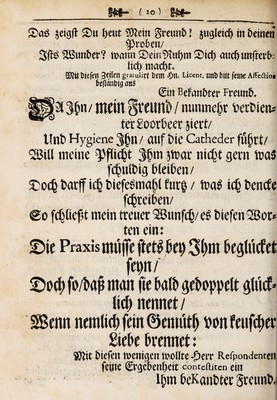 ( 10 )
Das zeigst Du heut Mein Freund! zugleich in deinen
Proben/
Ists Wunder? wann Dein Ruhm Dich auch unsterb-
lich macht.
Mit diesen Zeilen gratulirt dem Hn. Licent. und bitt seine Affection
beständig aus
Ein Bekandter Freund.
DA Jhn/ mein Freund/ nunmehr verdien-
ter Loorbeer ziert/
Und Hygiene Jhn/ auf die Catheder führt/
Will meine Pflicht Jhm zwar nicht gern was
schuldig bleiben/
Doch darff ich diesesmahl kurtz/ was ich dencke
schreiben/
So schließt mein treuer Wunsch/ es diesen Wor-
ten ein:
Die Praxis müsse stets bey Jhm beglücket
seyn/
Doch so/ daß man sie bald gedoppelt glück-
lich nennet/
Wenn nemlich sein Gemüth von keuscher
Liebe brennet:
Mit diesen wenigen wollte Herr Respondenten
seine Ergebenheit contestiren ein
Jhm beKandter Freund.